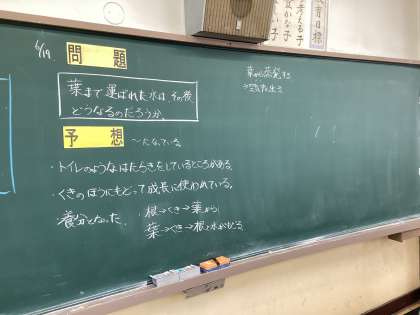 6/19.
問題
葉まで運ばれた水は、その後
どうなるのだろうか。
予想 〜になっている。
・トイレのようなはたらきをしているところがある。
・くきのほうにもどって成長に使われている。
養分となった。
根→くき→葉から
葉→くき→根と水がもどる
葉から蒸発する
考える子